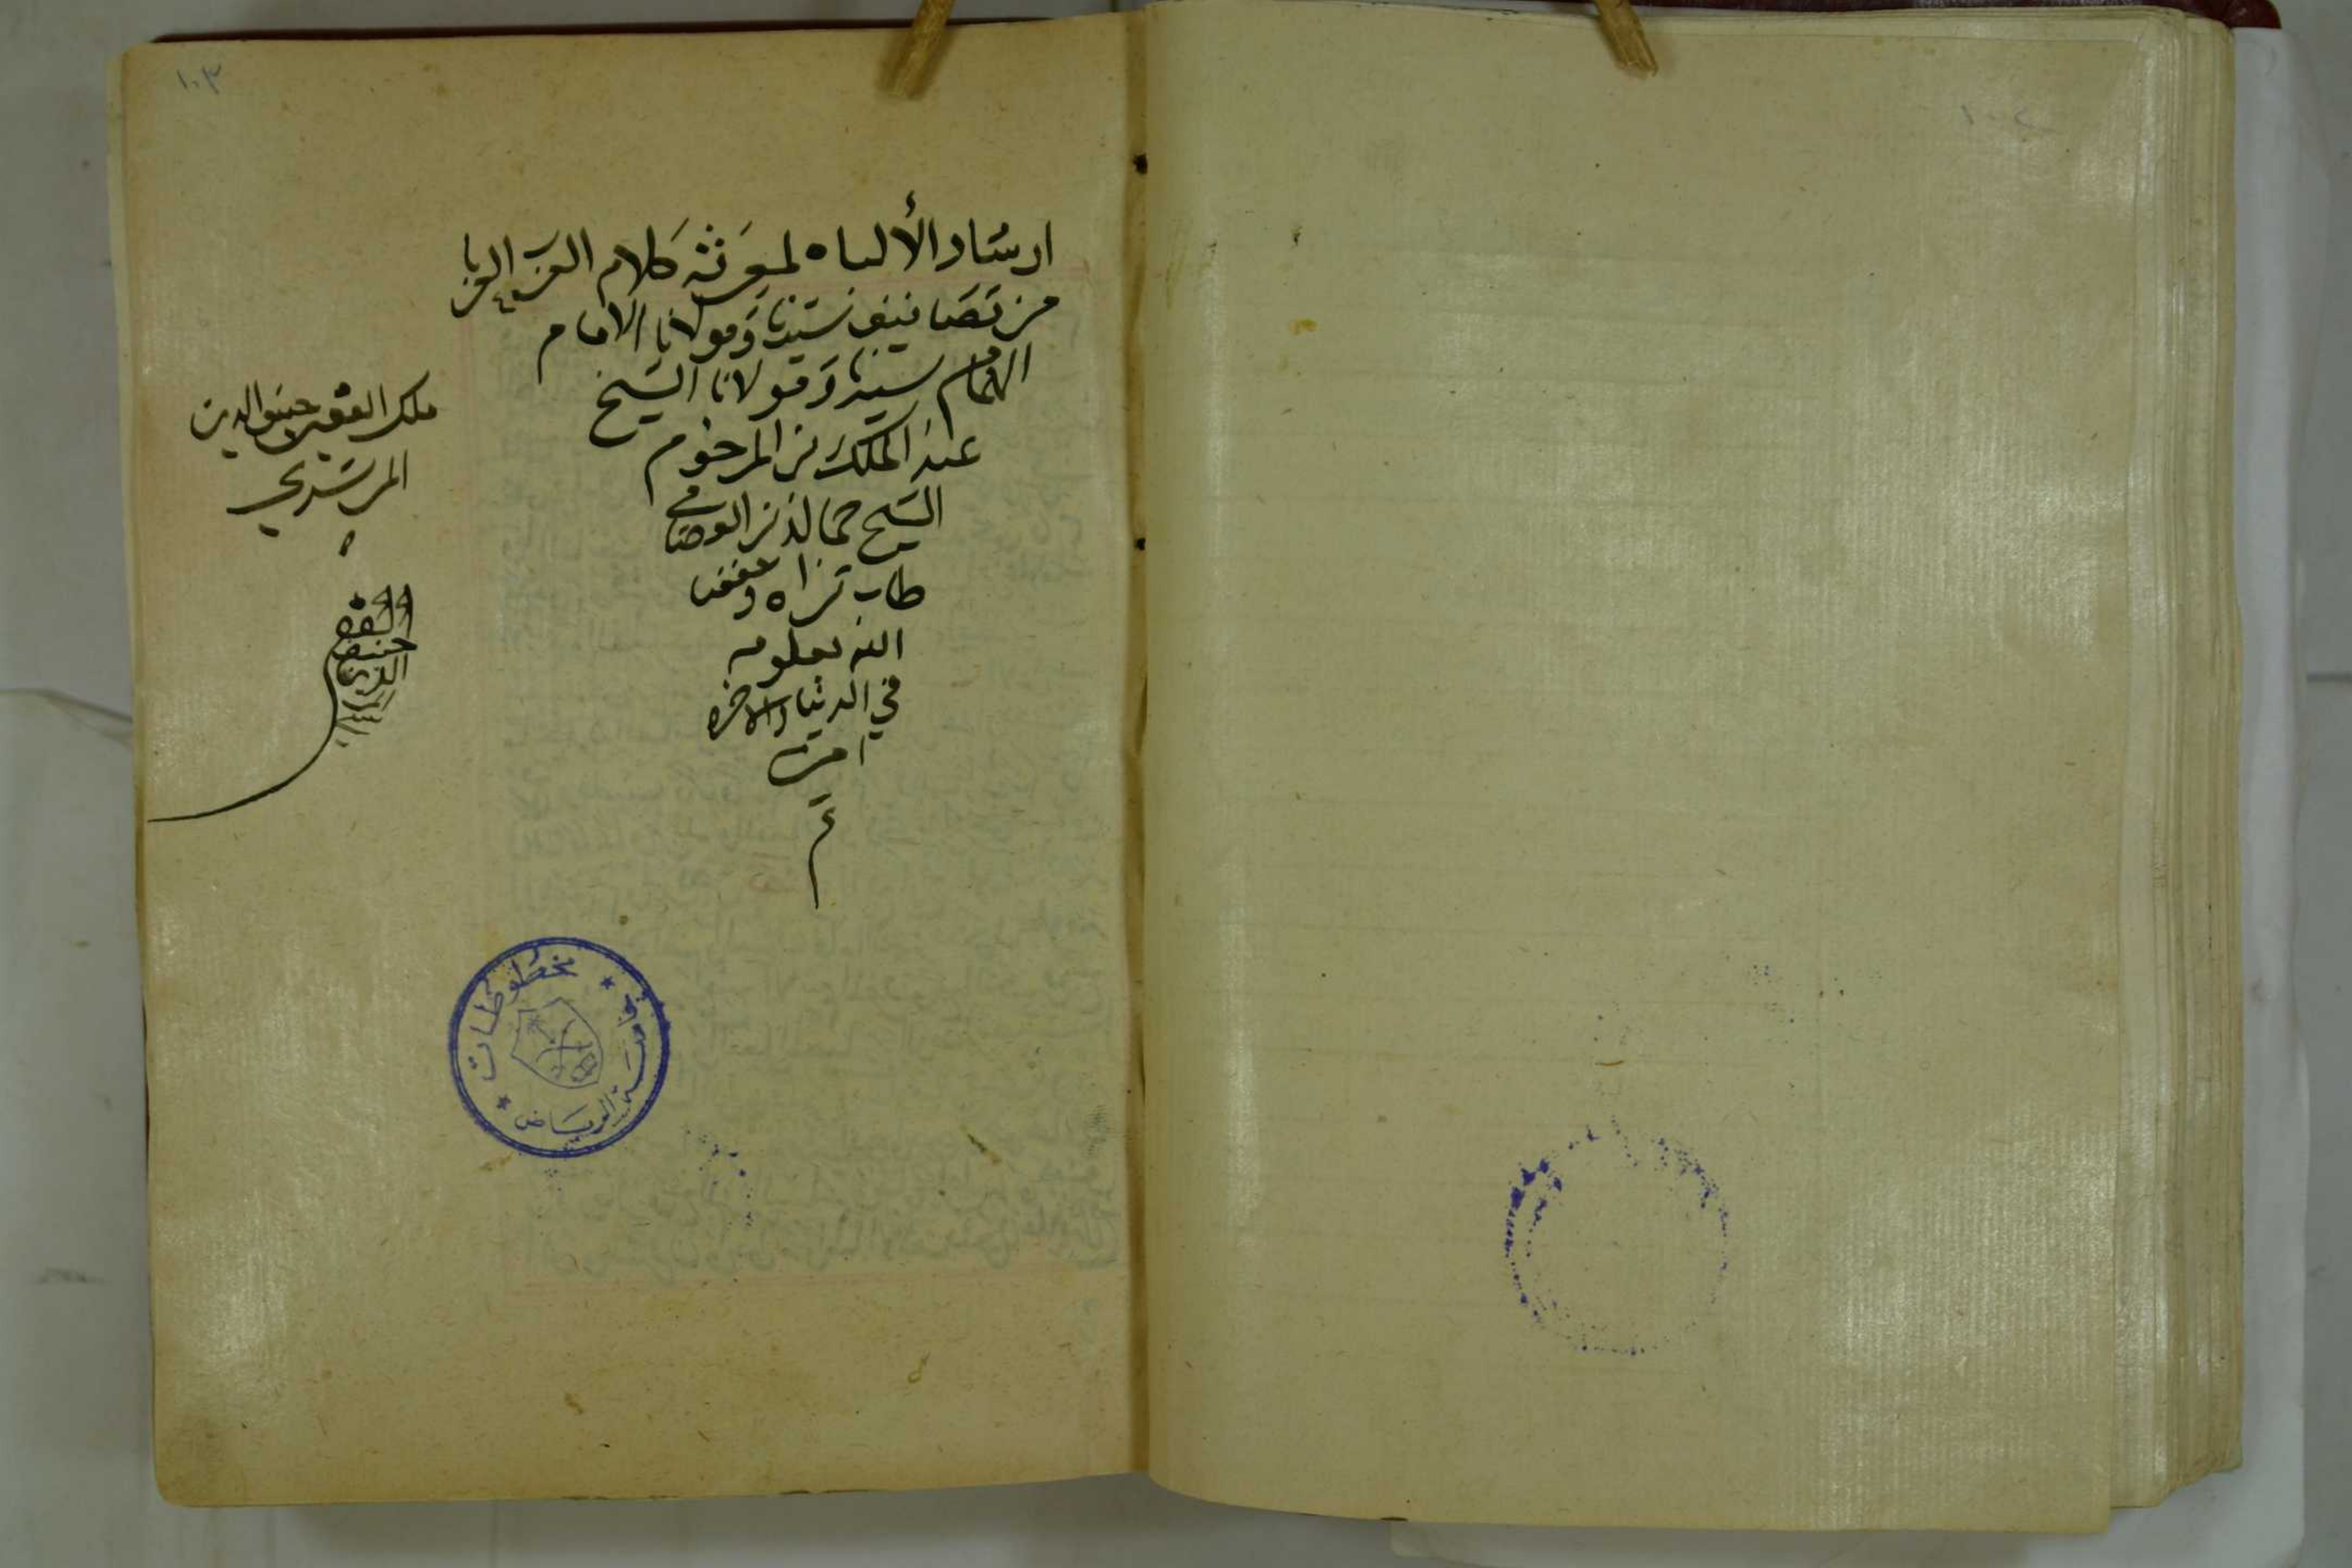 ١٠٣
ارشاد الألباء لمعرفة كلام العرب العربا
من تصانيف سيدنا ومولانا الامام
الهمام سيدنا ومولانا الشيخ
عبد الملك بن المرحوم
الشيخ جمال الدين العصامي
طاب ثراه ونفعنا
الله بعلومه
في الدنيا والاخره
امين
م
ملك الفقير حنيف الدين
المرشدي
الفقير
حنيف
الدين
مخطوطات
جامعة الرياض